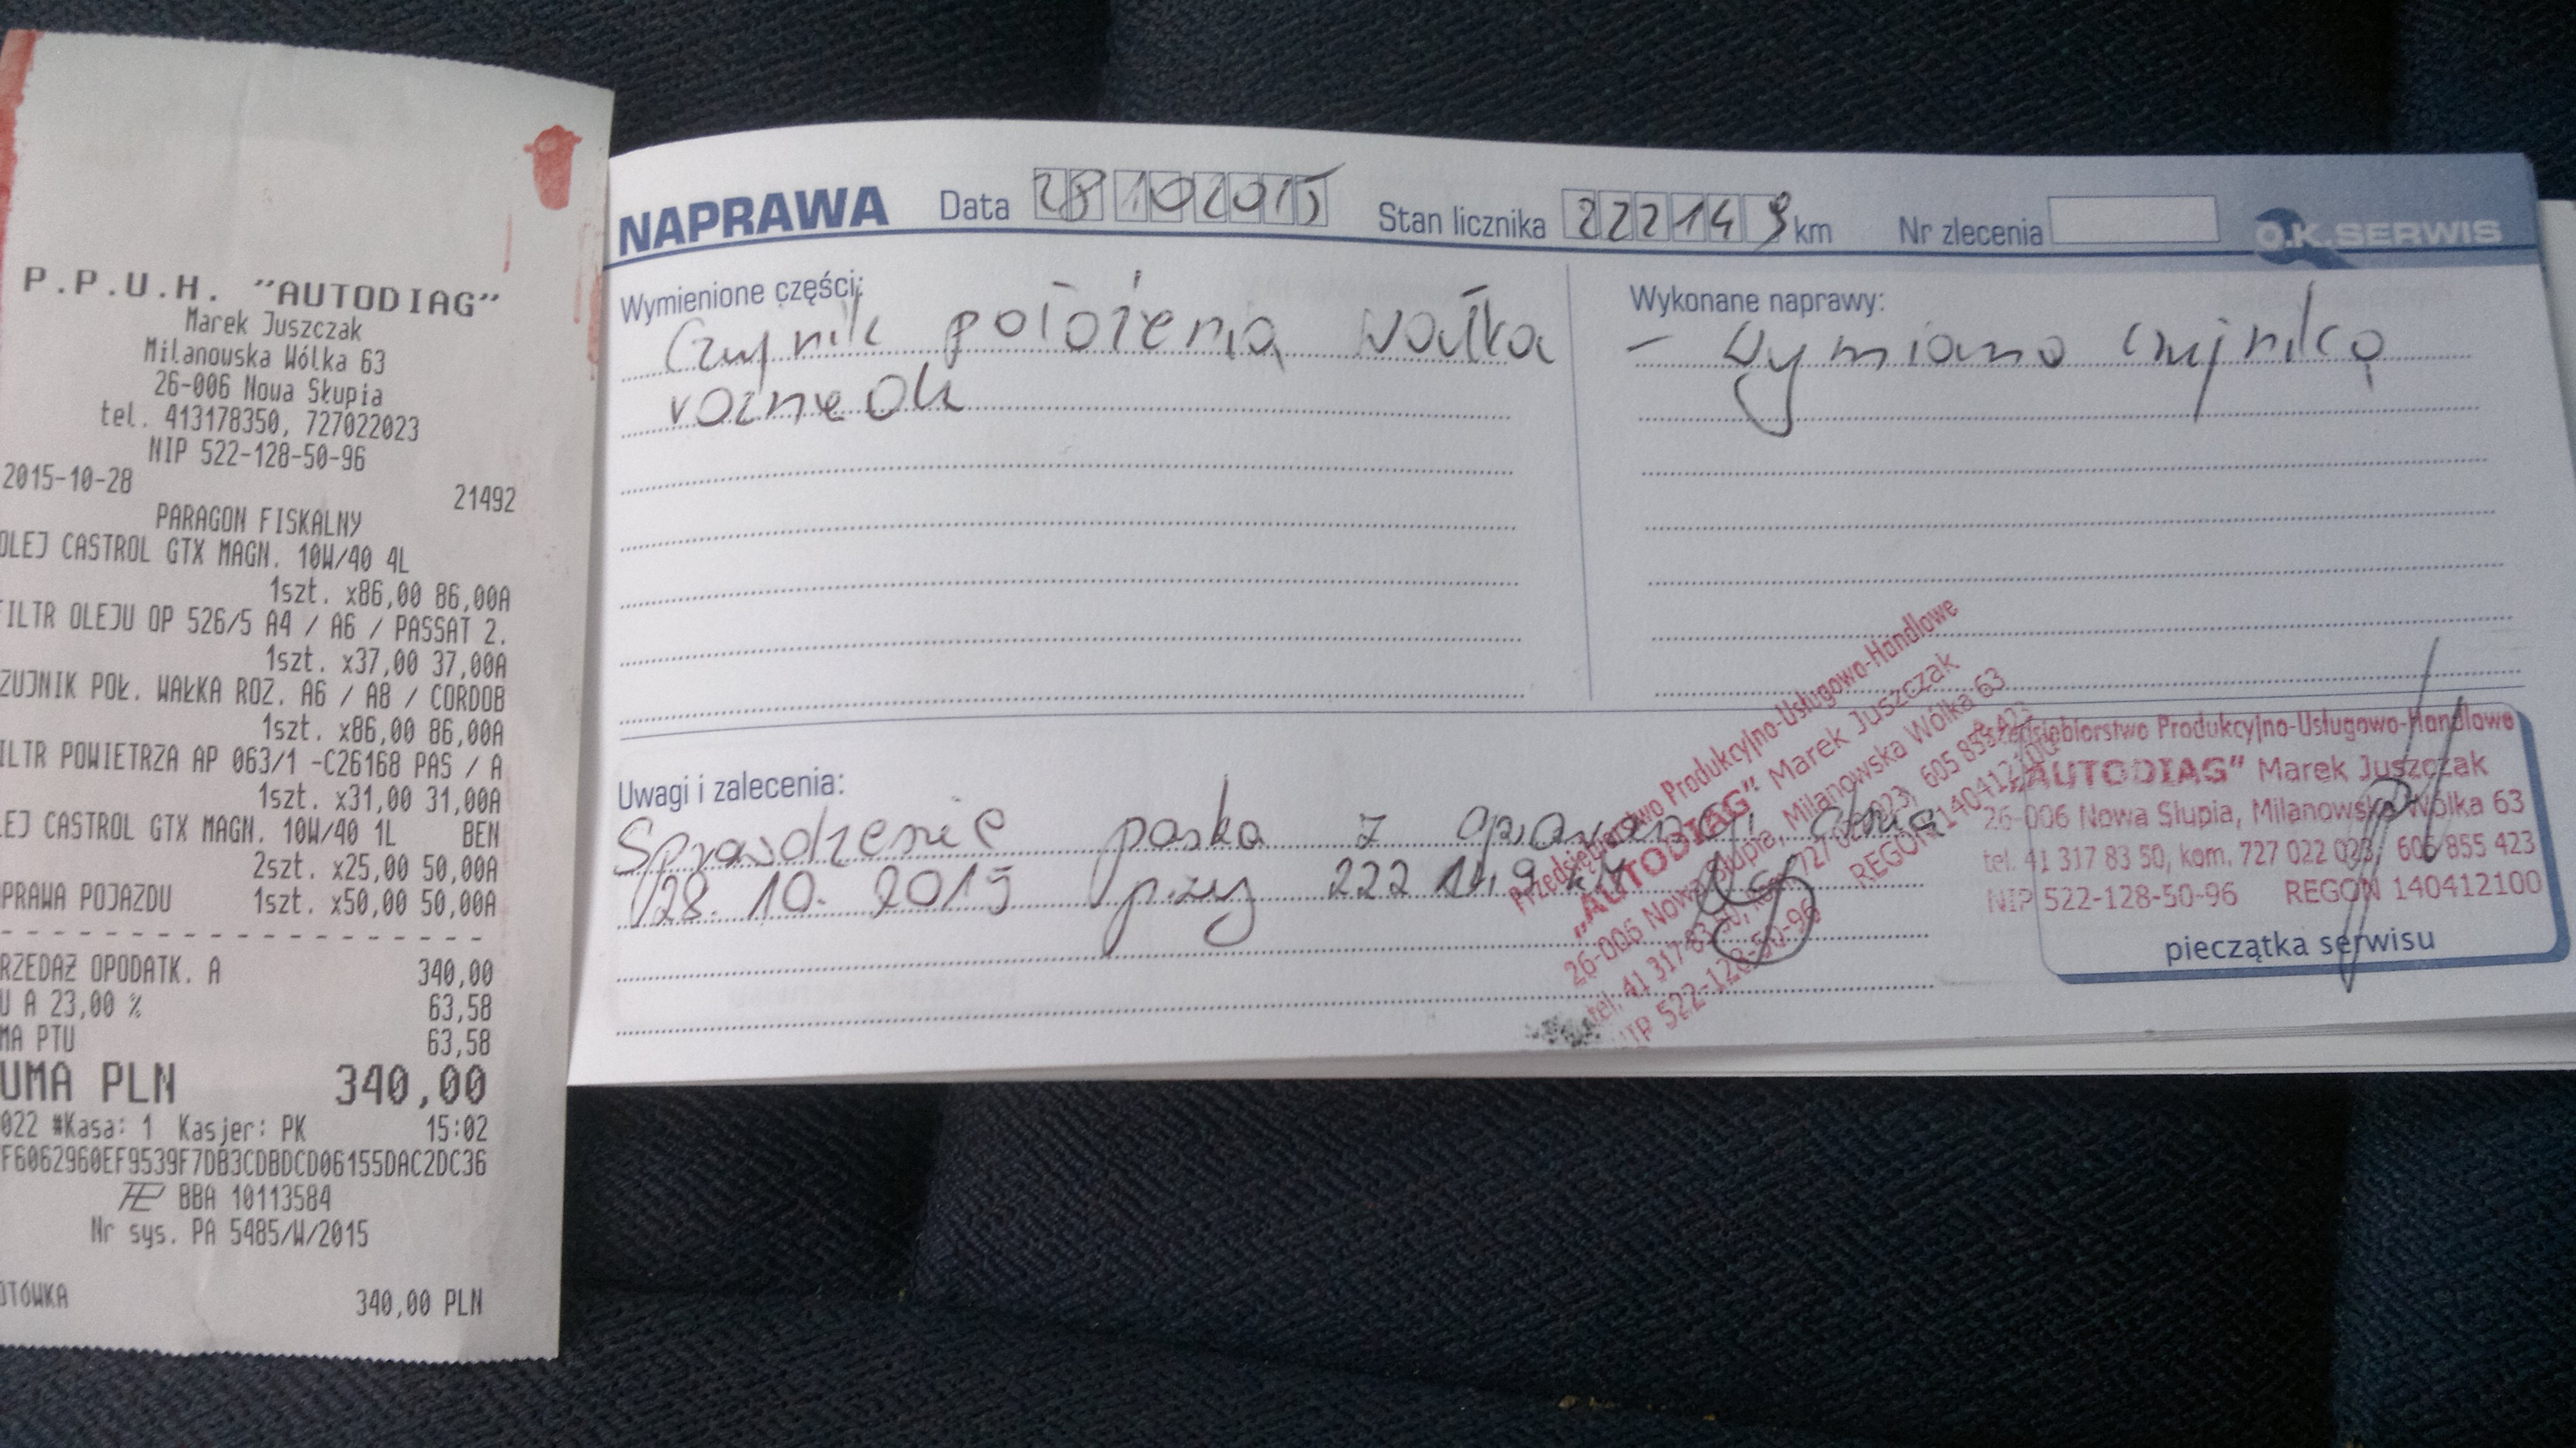 P.P.U.H. "AUTODIAG"
Marek Juszczak
Milanowska Wólka 63
26-006 Nowa Słupia
tel. 413178350, 727022023
NIP 522-128-50-96
2015-10-28
21492
PARAGON FISKALNY
OLEJ CASTROL GTX MAGN. 10W/40 4L
1szt. x86,00 86,00A
FILTR OLEJU OP 526/5 A4 / A6 / PASSAT 2.
1szt. x37,00 37,00A
ZUJNIK POŁ. WAŁKA ROZ. A6 / A8 / CORDOB
1szt. x86,00 86,00A
ILTR POWIETRZA AP 063/1 -C26168 PAS / A
1szt. x31,00 31,00A
LEJ CASTROL GTX MAGN. 10W/40 1L BEN
2szt. x25,00 50,00A
PRAWA POJAZDU 1szt. x50,00 50,00A
RZEDAŻ OPODATK. A 340,00
U A 23,00 % 63,58
MA PTU 63,58
UMA PLN 340,00
022 #Kasa: 1 Kasjer: PK 15:02
F6062960EF9539F7DB3CDBDCD06155DAC2DC36
BBA 10113584
Nr sys. PA 5485/W/2015
OTÓWKA 340,00 PLN
NAPRAWA Data 28102015 Stan licznika 222149 km Nr zlecenia O.K. SERWIS
Wymienione części:
Czujnik położenia wałka
rozrządu
Wykonane naprawy:
- Wymiana czujnika
Uwagi i zalecenia:
Sprawdzenie paska z dnia
28. 10. 2015 przy 222 149 km
Przedsiębiorstwo Produkcyjno-Usługowo-Handlowe
„AUTODIAG" Marek Juszczak
26-006 Nowa Słupia, Milanowska Wólka 63
tel. 41 317 83 50, kom. 727 022 023, 605 855 423
NIP 522-128-50-96 REGON 140412100
Przedsiębiorstwo Produkcyjno-Usługowo-Handlowe
„AUTODIAG" Marek Juszczak
26-006 Nowa Słupia, Milanowska Wólka 63
tel. 41 317 83 50, kom. 727 022 023, 605 855 423
NIP 522-128-50-96 REGON 140412100
pieczątka serwisu